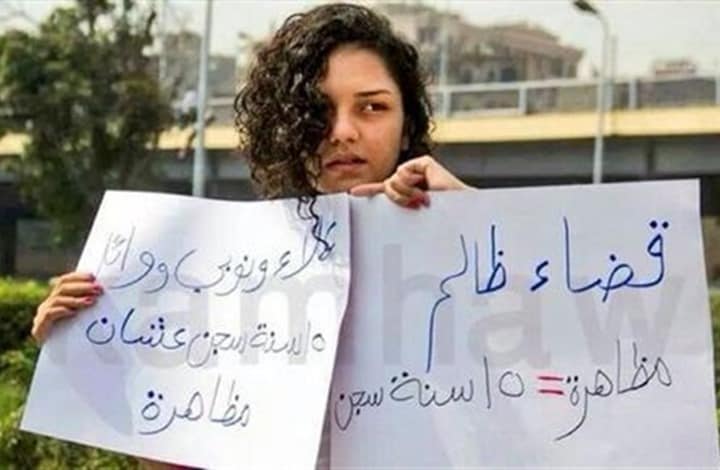 قضاء ظالم
مظاهرة = ١٥ سنة سجن
علاء ونوبى ووائل
١٥ سنة سجن عشان
مظاهرة